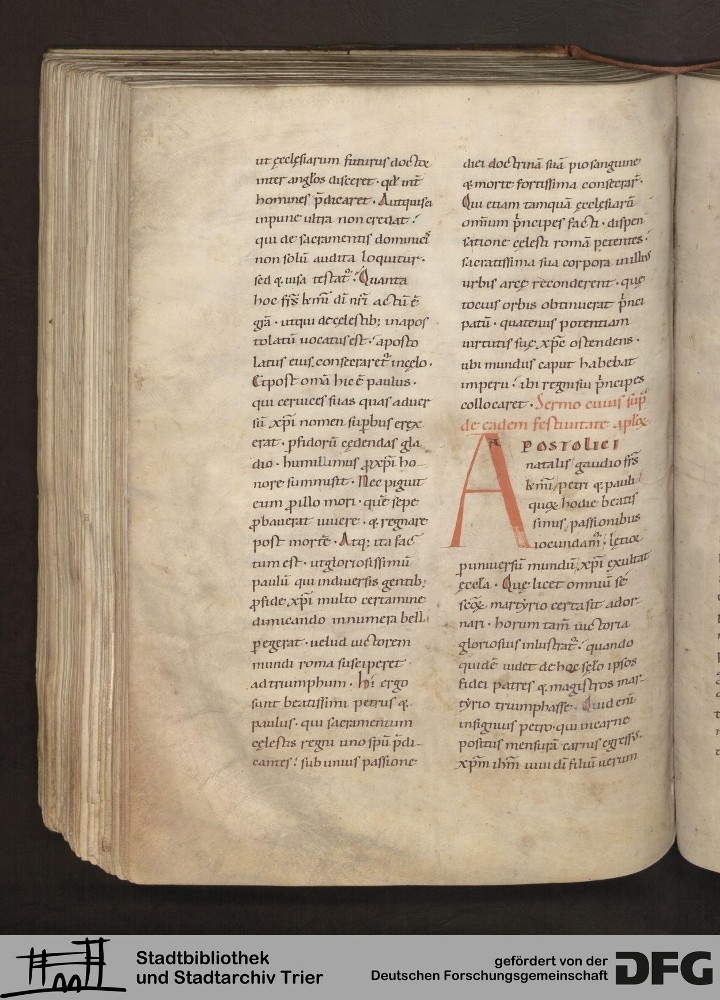 ut ęcclęsiarum futurus doctor
inter anglos disceret · qđ int̄
homines p̄dicaret · Aut quisq;
inpune ultra non credat ·
qui de sacramentis dominici
non solū audita loquitur ·
sed & uisa testat᷑ · Quanta
hoc frs̄ km̄i dī nr̄i actū ē
grā · ut qui de cęlestib; in apos
tolatū uocatus est · aposto
latus eius consecraret᷑ in cęlo ·
Et post om̄a hic ē paulus ·
qui ceruices suas quas aduer
sū xp̄i nomen sup̱bus erex
erat · p̱fidorū cędendas gla
dio · humillimus ꝓ xp̄i ho
nore summisit · Nec piguit
eum ꝓ illo mori · quē sepe
ꝓbauerat uiuere · & regnare
post mortē · Atq; ita fac
tum est · ut gloriosissimū
paulū qui in diuersis gentib;
ꝓ fide xp̄i multo certamine
dimicando innumera bella
p̱egerat · uelud uictorem
mundi roma susciperet
ad triumphum · Hi ergo
sunt beatissimi petrus &
paulus · qui sacramentum
cęlestis regni uno sp̄u p̄di
cantes · sub unius passione
diei doctrinā suā pio sanguine
& morte fortissima consecrar᷑ ·
Qui etiam tamquā ęcclęsiarū
omnium p̄ncipes facti · dispen
satione cęlesti romā petentes ·
sacratissima sua corpora in illius
urbis arce reconderent · quę
tocius orbis obtinuerat p̄nci
patū · quatenus potentiam
uirtutis suę xp̄c ostendens ·
ubi mundus caput habebat
imperii · ibi regni sui p̄ncipes
collocaret · Sermo cuius sup̄
de eadem festiuitate aplox̄
APOSTOLICI
natalis gaudio frs̄
km̄i petri & pauli
quoꝝ hodie beatis
simis passionibus
iocundam᷑ · lętior
p̱ uniuersū mundū xp̄i exultat
ęccla · Que licet omniū sc̄
scoꝝ martyrio certa sit ador
nari · horum tam̄ uictoria
gloriosius inlustrat᷑ · quando
quidē uidet de hoc sęlo ipsos
fidei patres & magistros mar
tyrio triumphasse · Quid enī
insignius petro · qui in carne
positus mensurā carnis egress᷒ ·
xp̄m ihm̄ uiui dī filiū uerum
Stadtbibliothek
und Stadtarchiv Trier
gefördert von der
Deutschen Forschungsgemeinschaft
DFG